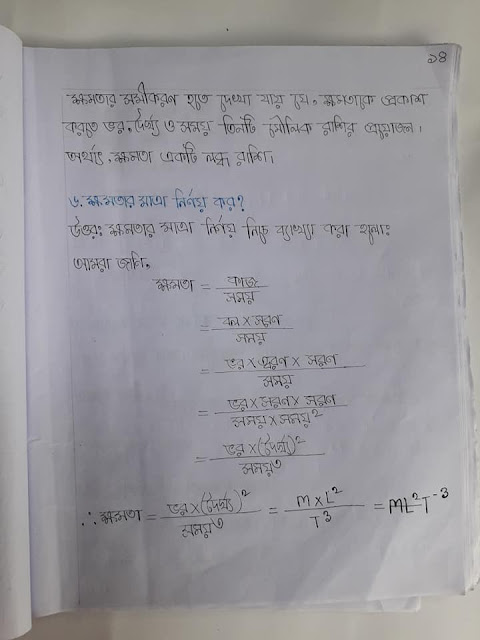 ১৪
ক্ষমতার সমীকরণ হতে দেখা যায় যে, ক্ষমতাকে প্রকাশ
করতে ভর, দৈর্ঘ্য ও সময় তিনটি মৌলিক রাশির প্রয়োজন।
অর্থাৎ, ক্ষমতা একটি লব্ধ রাশি।
৬. ক্ষমতার মাত্রা নির্ণয় কর?
উত্তরঃ ক্ষমতার মাত্রা নির্ণয় নিচে ব্যাখ্যা করা হলোঃ
আমরা জানি,
ক্ষমতা = কাজ / সময়
= বল × সরণ / সময়
= ভর × ত্বরণ × সরণ / সময়
= ভর × সরণ × সরণ / সময় × সময়²
= ভর × (দৈর্ঘ্য)² / সময়³
∴ ক্ষমতা = ভর × (দৈর্ঘ্য)² / সময়³ = M × L² / T³ = ML²T⁻³